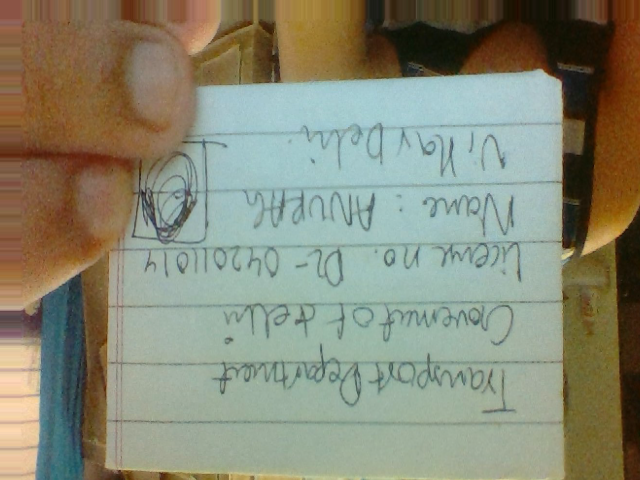 Transport Department
Governmet of delhi
License no. DL-042011014
Name : ANURAG
Vihar Delhi.